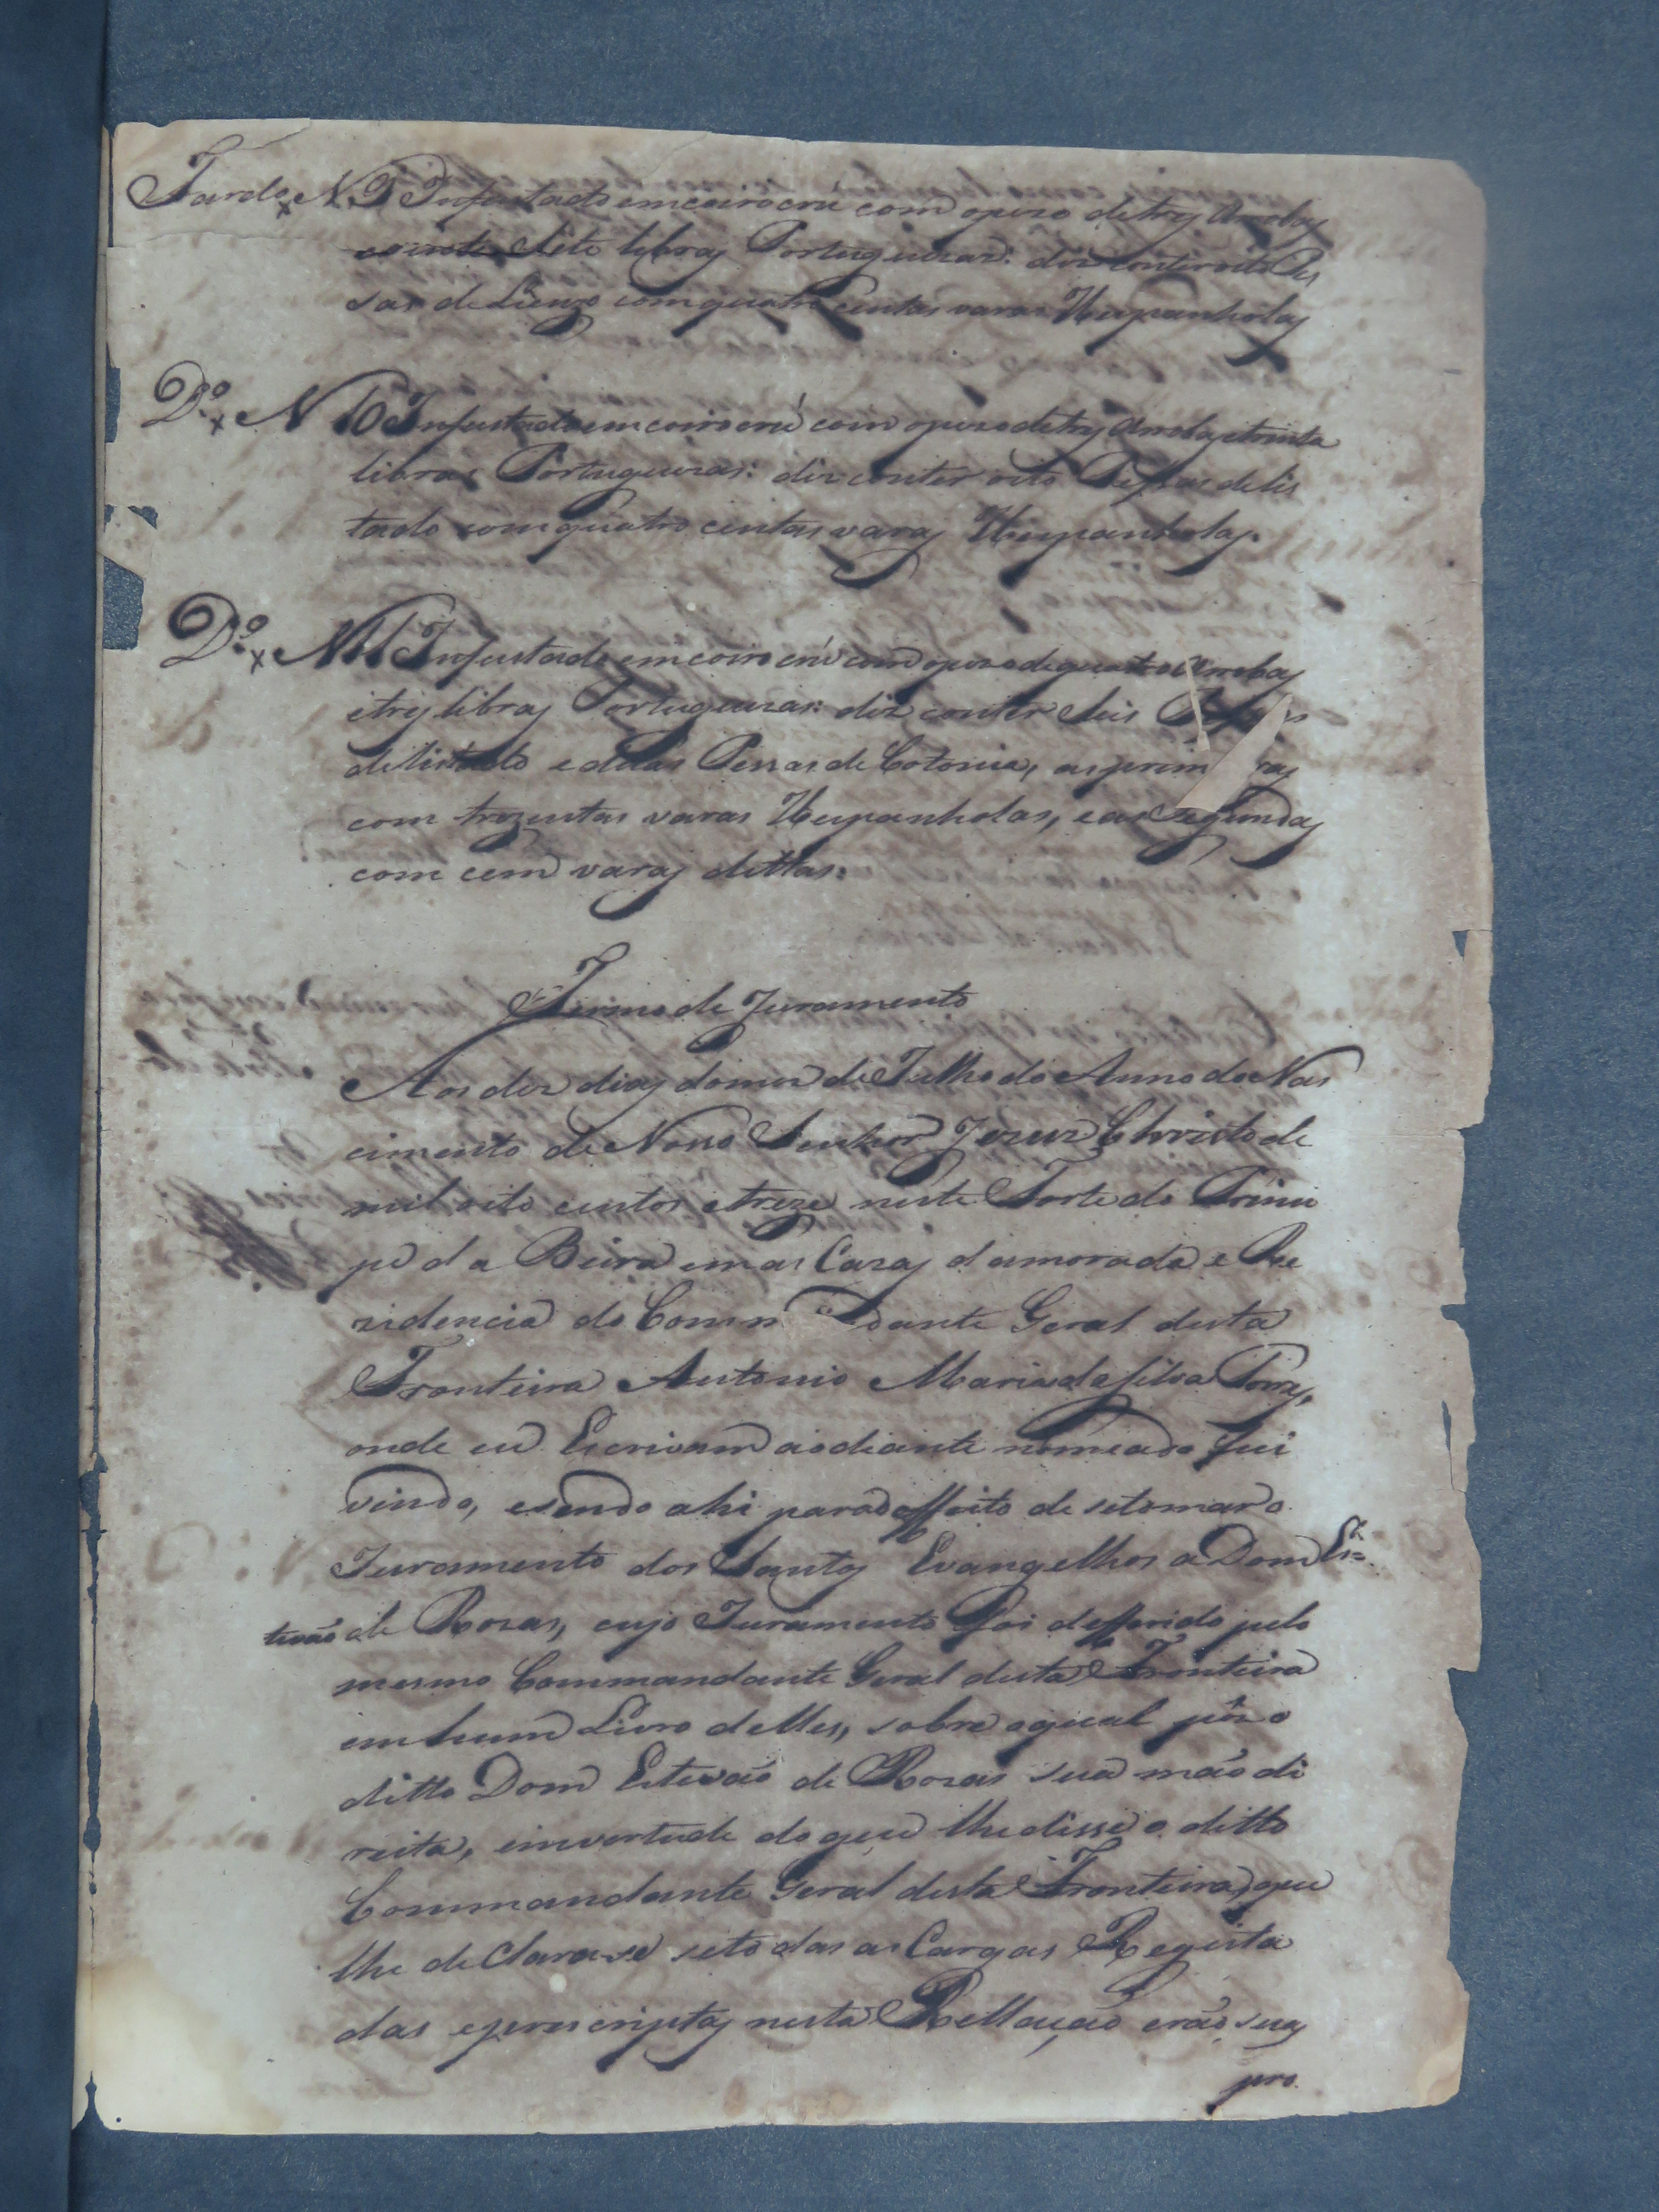 Fardo N. 9 Infustado em coiro crú com opezo de trez Arrobas
e vinte e Sete libras Portuguezas: diz conter oito Pes
sas de Lienzo com quatro centas varas Hespanholas
D.º N 10 Infustado em coiro crú com opezo de trez Arrobas e trinta
libras Portuguezas: diz conter oito Pessas de lis
tado com quatro centas varas Hespanholas.
D.º N 11 Infustado em coiro crú com opezo de quatro Arrobas
e trez libras Portuguezas: diz conter Seis
de listado e duas Pessas de Cotonia, as prim ras
com trezentas varas Hespanholas, e as Segundas
com cem varas dittas:
Termo de Juramento
Aos dez dias do mez de Julho do Anno do Nas
cimento de Nosso Senhor Jezus Christo de
mil oito centos e treze neste Forte do Princi
pe da Beira em as Cazas damorada e Re
zidencia do Comm dante Geral desta
Fronteira Antonio Maria da Silva Torres,
onde eu Escrivam aodiante nomeado fui
vindo, e sendo ahi para o effeito de se tomar o
Juramento dos Santos Evangelhos a Dom Es=
tevão de Rozas, cujo Juramento foi defferido pelo
mesmo Commandante Geral desta Fronteira
em hum Livro delles, sobre o qual pôz o
ditto Dom Estevão de Rozas sua mão di
reita, em vertude do que lhe disse o ditto
Commandante Geral desta Fronteira, que
lhe declara-se se todas as Cargas Regista
das e prescriptas nesta Rellação erão suas
pro.